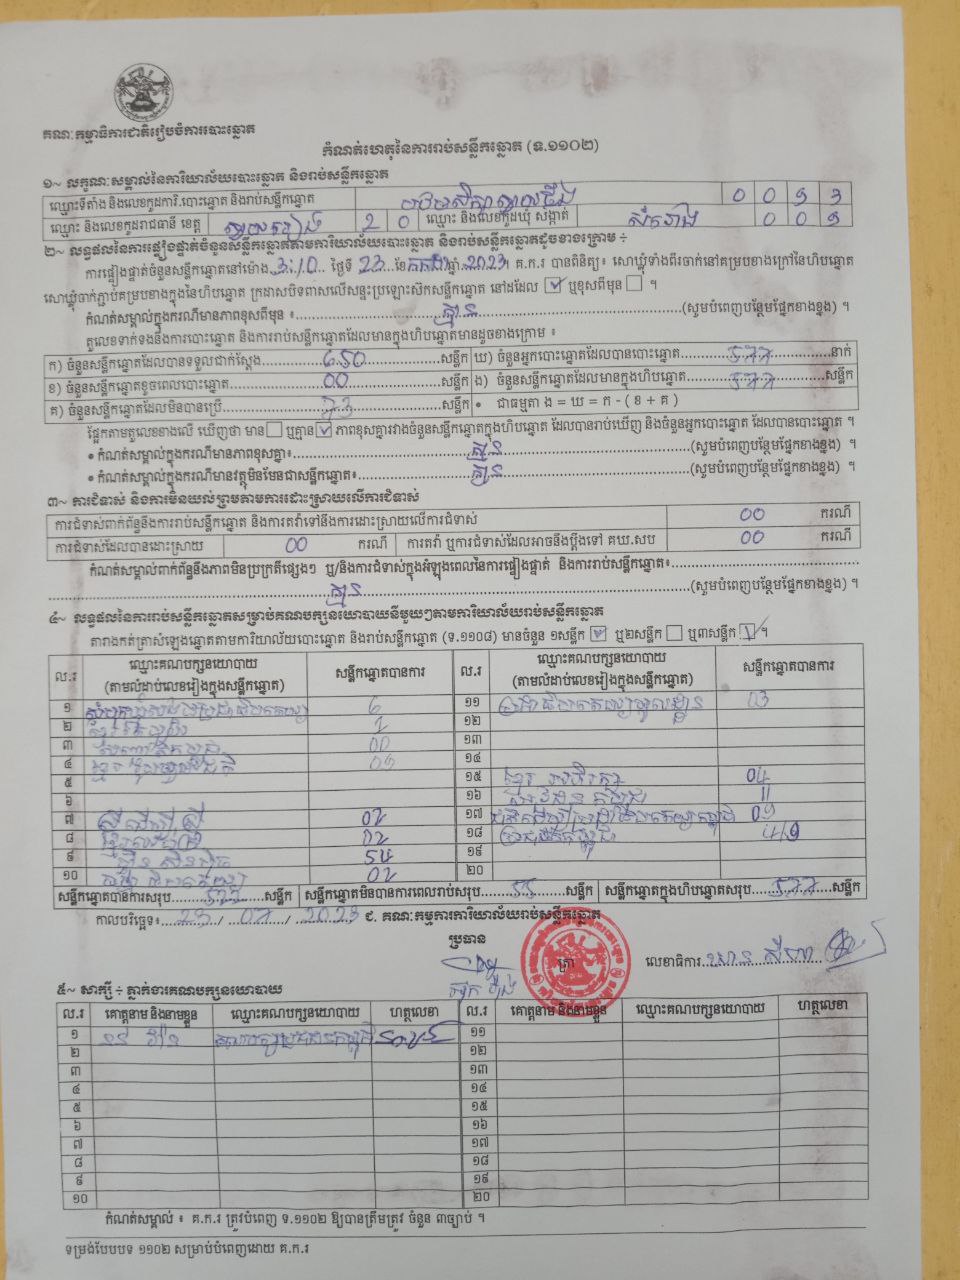 គណៈកម្មាធិការជាតិរៀបចំការបោះឆ្នោត
កំណត់ហេតុនៃការរាប់សន្លឹកឆ្នោត (ទ.១១០២)
១~ លក្ខណៈសម្គាល់នៃការិយាល័យបោះឆ្នោត និងរាប់សន្លឹកឆ្នោត
ឈ្មោះទីតាំង និងលេខកូដការិ.បោះឆ្នោត និងរាប់សន្លឹកឆ្នោត
ឈ្មោះ និងលេខកូដរាជធានី ខេត្ត ស្វាយរៀង 2 0 ឈ្មោះ និងលេខកូដឃុំ សង្កាត់ សំរោង
២~ លទ្ធផលនៃការផ្ទៀងផ្ទាត់ចំនួនសន្លឹកឆ្នោតតាមការិយាល័យបោះឆ្នោត និងរាប់សន្លឹកឆ្នោតដូចខាងក្រោម ÷
ការផ្ទៀងផ្ទាត់ចំនួនសន្លឹកឆ្នោតនៅម៉ោង 3:10 ថ្ងៃទី 23 ខែ កក្កដា ឆ្នាំ 2023 ។ គ.ក.រ បានពិនិត្យ៖ សោឃ្លុំទាំងពីរចាក់នៅគម្របខាងក្រៅនៃហិបឆ្នោត
សោឃ្លុំចាក់ភ្ជាប់គម្របខាងក្នុងនៃហិបឆ្នោត ក្រដាសបិទពាសលើសន្ទះប្រឡោះសឹកសន្លឹកឆ្នោត នៅដដែល ☑ ឬខុសពីមុន ☐ ។
កំណត់សម្គាល់ក្នុងករណីមានភាពខុសពីមុន ៖ គ្មាន (សូមបំពេញបន្ថែមផ្នែកខាងខ្នង) ។
តួលេខទាក់ទងនឹងការបោះឆ្នោត និងការរាប់សន្លឹកឆ្នោតដែលមានក្នុងហិបឆ្នោតមានដូចខាងក្រោម ៖
ក) ចំនួនសន្លឹកឆ្នោតដែលបានទទួលជាក់ស្តែង 650 សន្លឹក ឃ) ចំនួនអ្នកបោះឆ្នោតដែលបានបោះឆ្នោត 577 នាក់
ខ) ចំនួនសន្លឹកឆ្នោតខូចពេលបោះឆ្នោត 00 សន្លឹក ង) ចំនួនសន្លឹកឆ្នោតដែលមានក្នុងហិបឆ្នោត 577 សន្លឹក
គ) ចំនួនសន្លឹកឆ្នោតដែលមិនបានប្រើ 73 សន្លឹក • ជាធម្មតា ង = ឃ = ក - ( ខ + គ )
ផ្អែកតាមតួលេខខាងលើ ឃើញថា មាន ☐ ឬគ្មាន ☑ ភាពខុសគ្នារវាងចំនួនសន្លឹកឆ្នោតក្នុងហិបឆ្នោត ដែលបានរាប់ឃើញ និងចំនួនអ្នកបោះឆ្នោត ដែលបានបោះឆ្នោត ។
• កំណត់សម្គាល់ក្នុងករណីមានភាពខុសគ្នា៖ គ្មាន (សូមបំពេញបន្ថែមផ្នែកខាងខ្នង) ។
• កំណត់សម្គាល់ក្នុងករណីមានវត្ថុមិនមែនជាសន្លឹកឆ្នោត៖ គ្មាន (សូមបំពេញបន្ថែមផ្នែកខាងខ្នង) ។
៣~ ការជំទាស់ និងការមិនយល់ព្រមតាមការដោះស្រាយលើការជំទាស់
ការជំទាស់ពាក់ព័ន្ធនឹងការរាប់សន្លឹកឆ្នោត និងការតវ៉ាទៅនឹងការដោះស្រាយលើការជំទាស់ 00 ករណី
ការជំទាស់ដែលបានដោះស្រាយ 00 ករណី ការតវ៉ា ឬការជំទាស់ដែលអាចនឹងប្តឹងទៅ គឃ.សប 00 ករណី
កំណត់សម្គាល់ពាក់ព័ន្ធនឹងភាពមិនប្រក្រតីផ្សេងៗ ឬ/និងការជំទាស់ក្នុងអំឡុងពេលនៃការផ្ទៀងផ្ទាត់ និងការរាប់សន្លឹកឆ្នោត៖
គ្មាន (សូមបំពេញបន្ថែមផ្នែកខាងខ្នង) ។
៤~ លទ្ធផលនៃការរាប់សន្លឹកឆ្នោតសម្រាប់គណបក្សនយោបាយនីមួយៗតាមការិយាល័យរាប់សន្លឹកឆ្នោត
តារាងកត់ត្រាសំឡេងឆ្នោតតាមការិយាល័យបោះឆ្នោត និងរាប់សន្លឹកឆ្នោត (ទ.១១០៨) មានចំនួន ១សន្លឹក ☑ ឬ២សន្លឹក ☐ ឬ៣សន្លឹក ☑ ។
ល.រ ឈ្មោះគណបក្សនយោបាយ (តាមលំដាប់លេខរៀងក្នុងសន្លឹកឆ្នោត) សន្លឹកឆ្នោតបានការ ល.រ ឈ្មោះគណបក្សនយោបាយ (តាមលំដាប់លេខរៀងក្នុងសន្លឹកឆ្នោត) សន្លឹកឆ្នោតបានការ
១ 6 ១១
២ 2 ១២
៣ 00 ១៣
៤ ១៤
៥ ១៥ 04
៦ ១៦ 11
៧ 02 ១៧
៨ 02 ១៨
៩ 54 ១៩
១០ 02 ២០
សន្លឹកឆ្នោតបានការសរុប 522 សន្លឹក សន្លឹកឆ្នោតមិនបានការពេលរាប់សរុប 55 សន្លឹក សន្លឹកឆ្នោតក្នុងហិបឆ្នោតសរុប 577 សន្លឹក
កាលបរិច្ឆេទ៖ 23 / 07 / 2023 ជ. គណៈកម្មការការិយាល័យរាប់សន្លឹកឆ្នោត
ប្រធាន
ត្រា
លេខាធិការ
៥~ សាក្សី ÷ ភ្នាក់ងារគណបក្សនយោបាយ
ល.រ គោត្តនាម និងនាមខ្លួន ឈ្មោះគណបក្សនយោបាយ ហត្ថលេខា ល.រ គោត្តនាម និងនាមខ្លួន ឈ្មោះគណបក្សនយោបាយ ហត្ថលេខា
១ ១១
២ ១២
៣ ១៣
៤ ១៤
៥ ១៥
៦ ១៦
៧ ១៧
៨ ១៨
៩ ១៩
១០ ២០
កំណត់សម្គាល់ ៖ គ.ក.រ ត្រូវបំពេញ ទ.១១០២ ឱ្យបានត្រឹមត្រូវ ចំនួន ៣ច្បាប់ ។
ទម្រង់បែបបទ ១១០២ សម្រាប់បំពេញដោយ គ.ក.រ